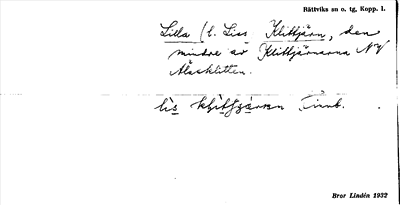 Rättviks sn o. tg, Kopp. l.
Lilla (l. Liss Klittjärn, den
mindre av Klittjärnarna NV
Åsasklitten.
lìs
Bror Lindén 1932